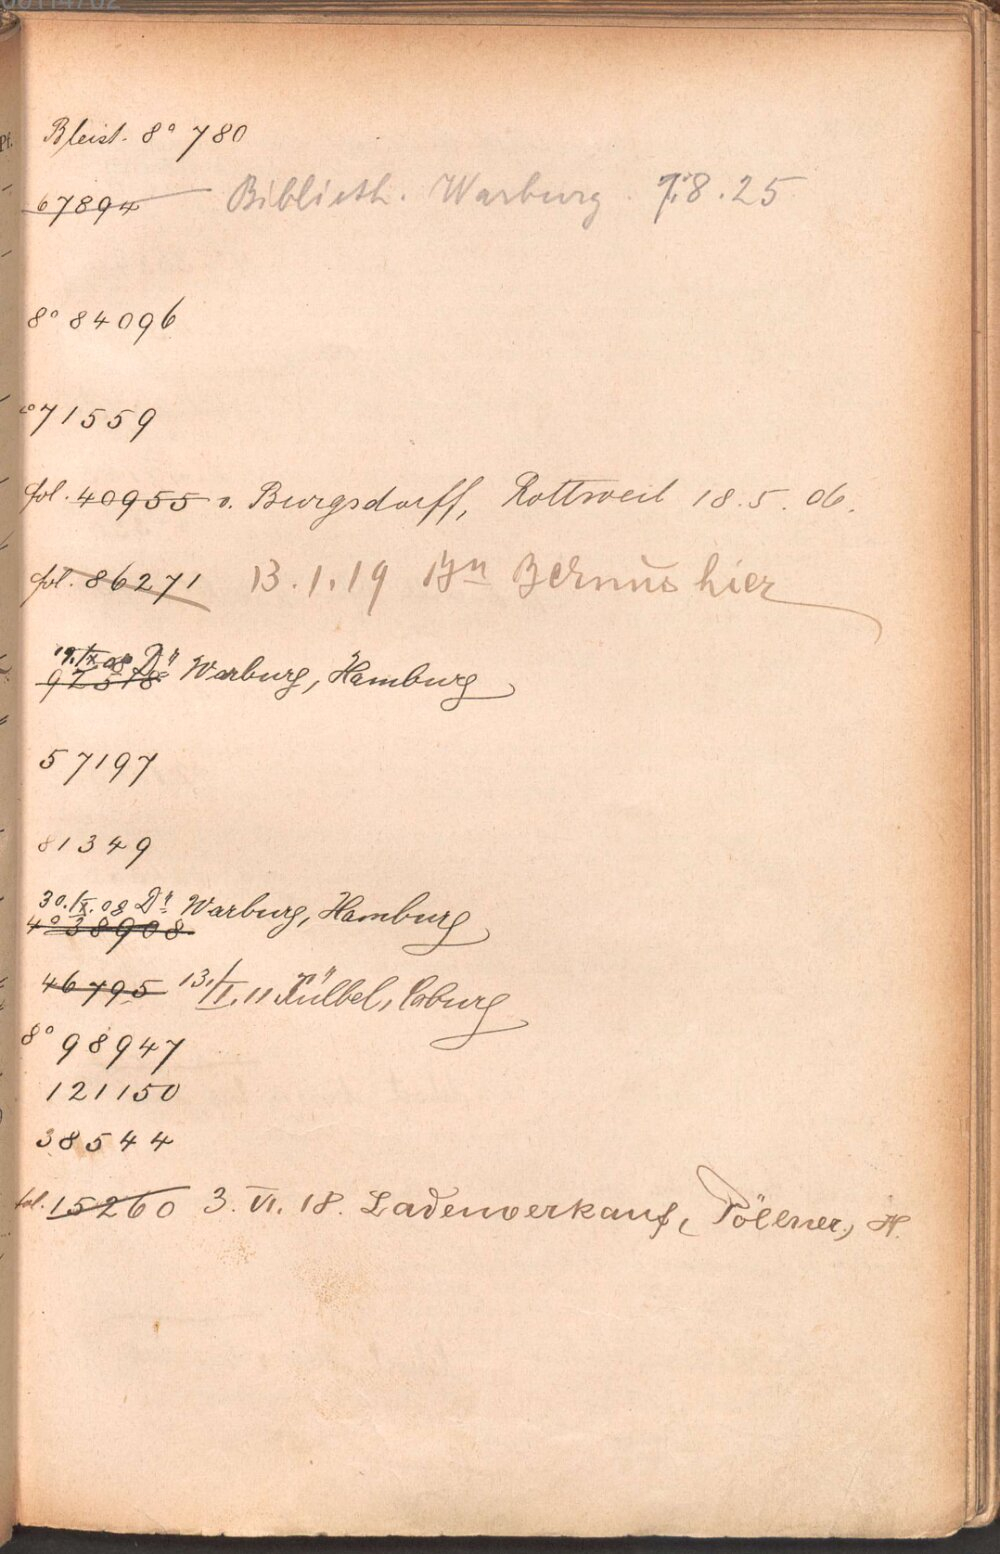 Bleist. 8° 780
67894 Biblioth. Warburg. 7.8.25
8° 84096
° 71559
fol. 40955 v. Burgsdorff, Rottweil 18.5.06.
fol. 86271 13.1.19 Bernus hier
19./IX.08 Dr Warburg, Hamburg
97578
57197
81349
30./IX.08 Dr Warburg, Hamburg
4° 38908
46795 13./I.11 Külbel, Coburg
8° 98947
121150
38544
fol. 15260 3. VI. 18. Ladenverkauf, Pöllner, H.